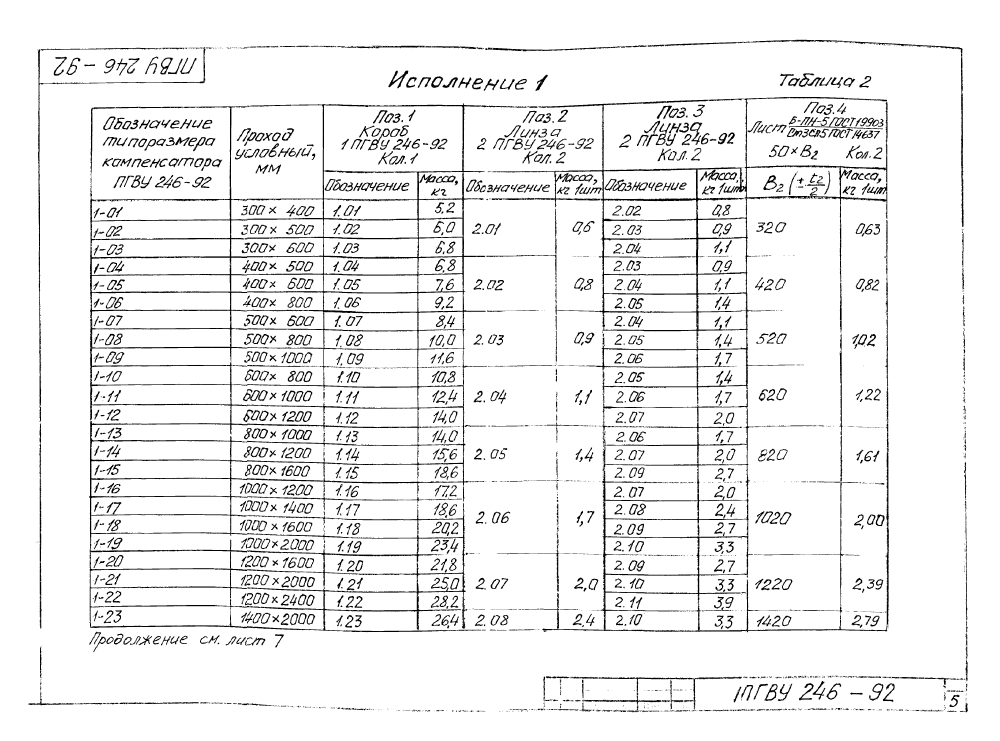 ПГВУ 246 - 92
Исполнение 1
Таблица 2
Обозначение типоразмера компенсатора ПГВУ 246-92
Проход условный, мм
Поз. 1 Короб 1 ПГВУ 246-92 Кол. 1
Поз. 2 Линза 2 ПГВУ 246-92 Кол. 2
Поз. 3 Линза 2 ПГВУ 246-92 Кол. 2
Поз. 4 Лист Б-ПН-5 ГОСТ 19903 / Вт3сп5 ГОСТ 14637 50×B2 Кол. 2
Обозначение Масса, кг Обозначение Масса, кг 1шт Обозначение Масса, кг 1шт B2 (± t2/2) Масса, кг 1шт
1-01 300 × 400 1.01 5,2 2.02 0,8
1-02 300 × 500 1.02 6,0 2.01 0,6 2.03 0,9 320 0,63
1-03 300 × 600 1.03 6,8 2.04 1,1
1-04 400 × 500 1.04 6,8 2.03 0,9
1-05 400 × 600 1.05 7,6 2.02 0,8 2.04 1,1 420 0,82
1-06 400 × 800 1.06 9,2 2.05 1,4
1-07 500 × 600 1.07 8,4 2.04 1,1
1-08 500 × 800 1.08 10,0 2.03 0,9 2.05 1,4 520 1,02
1-09 500 × 1000 1.09 11,6 2.06 1,7
1-10 600 × 800 1.10 10,8 2.05 1,4
1-11 600 × 1000 1.11 12,4 2.04 1,1 2.06 1,7 620 1,22
1-12 600 × 1200 1.12 14,0 2.07 2,0
1-13 800 × 1000 1.13 14,0 2.06 1,7
1-14 800 × 1200 1.14 15,6 2.05 1,4 2.07 2,0 820 1,61
1-15 800 × 1600 1.15 18,6 2.09 2,7
1-16 1000 × 1200 1.16 17,2 2.07 2,0
1-17 1000 × 1400 1.17 18,6 2.06 1,7 2.08 2,4 1020 2,00
1-18 1000 × 1600 1.18 20,2 2.09 2,7
1-19 1000 × 2000 1.19 23,4 2.10 3,3
1-20 1200 × 1600 1.20 21,8 2.09 2,7
1-21 1200 × 2000 1.21 25,0 2.07 2,0 2.10 3,3 1220 2,39
1-22 1200 × 2400 1.22 28,2 2.11 3,9
1-23 1400 × 2000 1.23 26,4 2.08 2,4 2.10 3,3 1420 2,79
Продолжение см. лист 7
ПГВУ 246 - 92
5